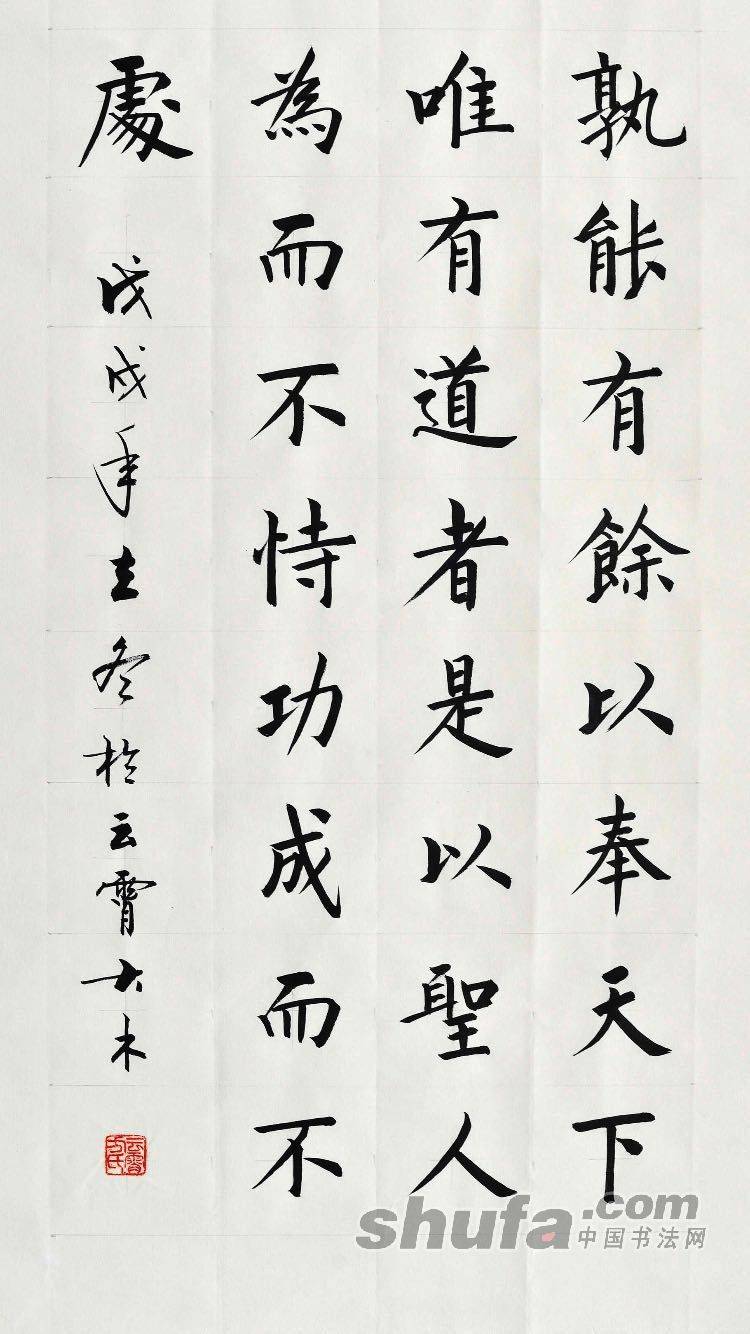 孰能有餘以奉天下
唯有道者是以聖人
為而不恃功成而不
處
戊戌年立冬於云霄大木
shufa.com
中国书法网